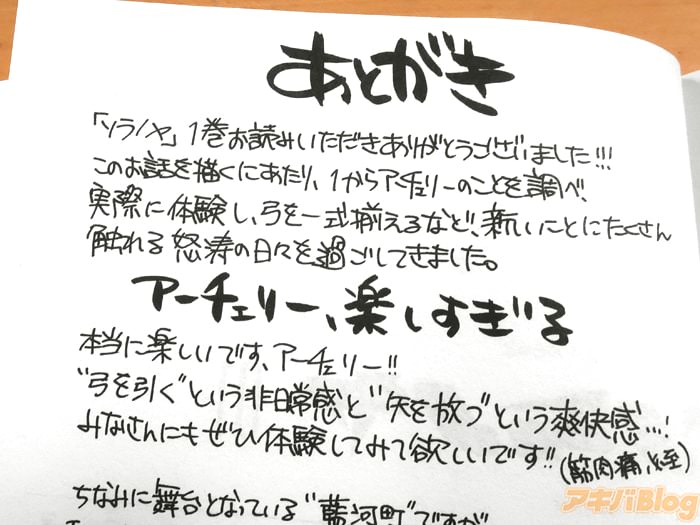 あとがき
「ソラノヤ」1巻お読みいただきありがとうございました!!!
このお話を描くにあたり、1からアーチェリーのことを調べ、
実際に体験し、弓を一式揃えるなど、新しいことにたくさん
触れる怒涛の日々を過ごしてきました。
アーチェリー、楽しすぎる
本当に楽しいです、アーチェリー!!
"弓を引く"という非日常感と"矢を放つ"という爽快感…!
みなさんにもぜひ体験してみて欲しいです!! (筋肉痛必至)
ちなみに舞台となっている"藍河町"ですが
アキバBlog